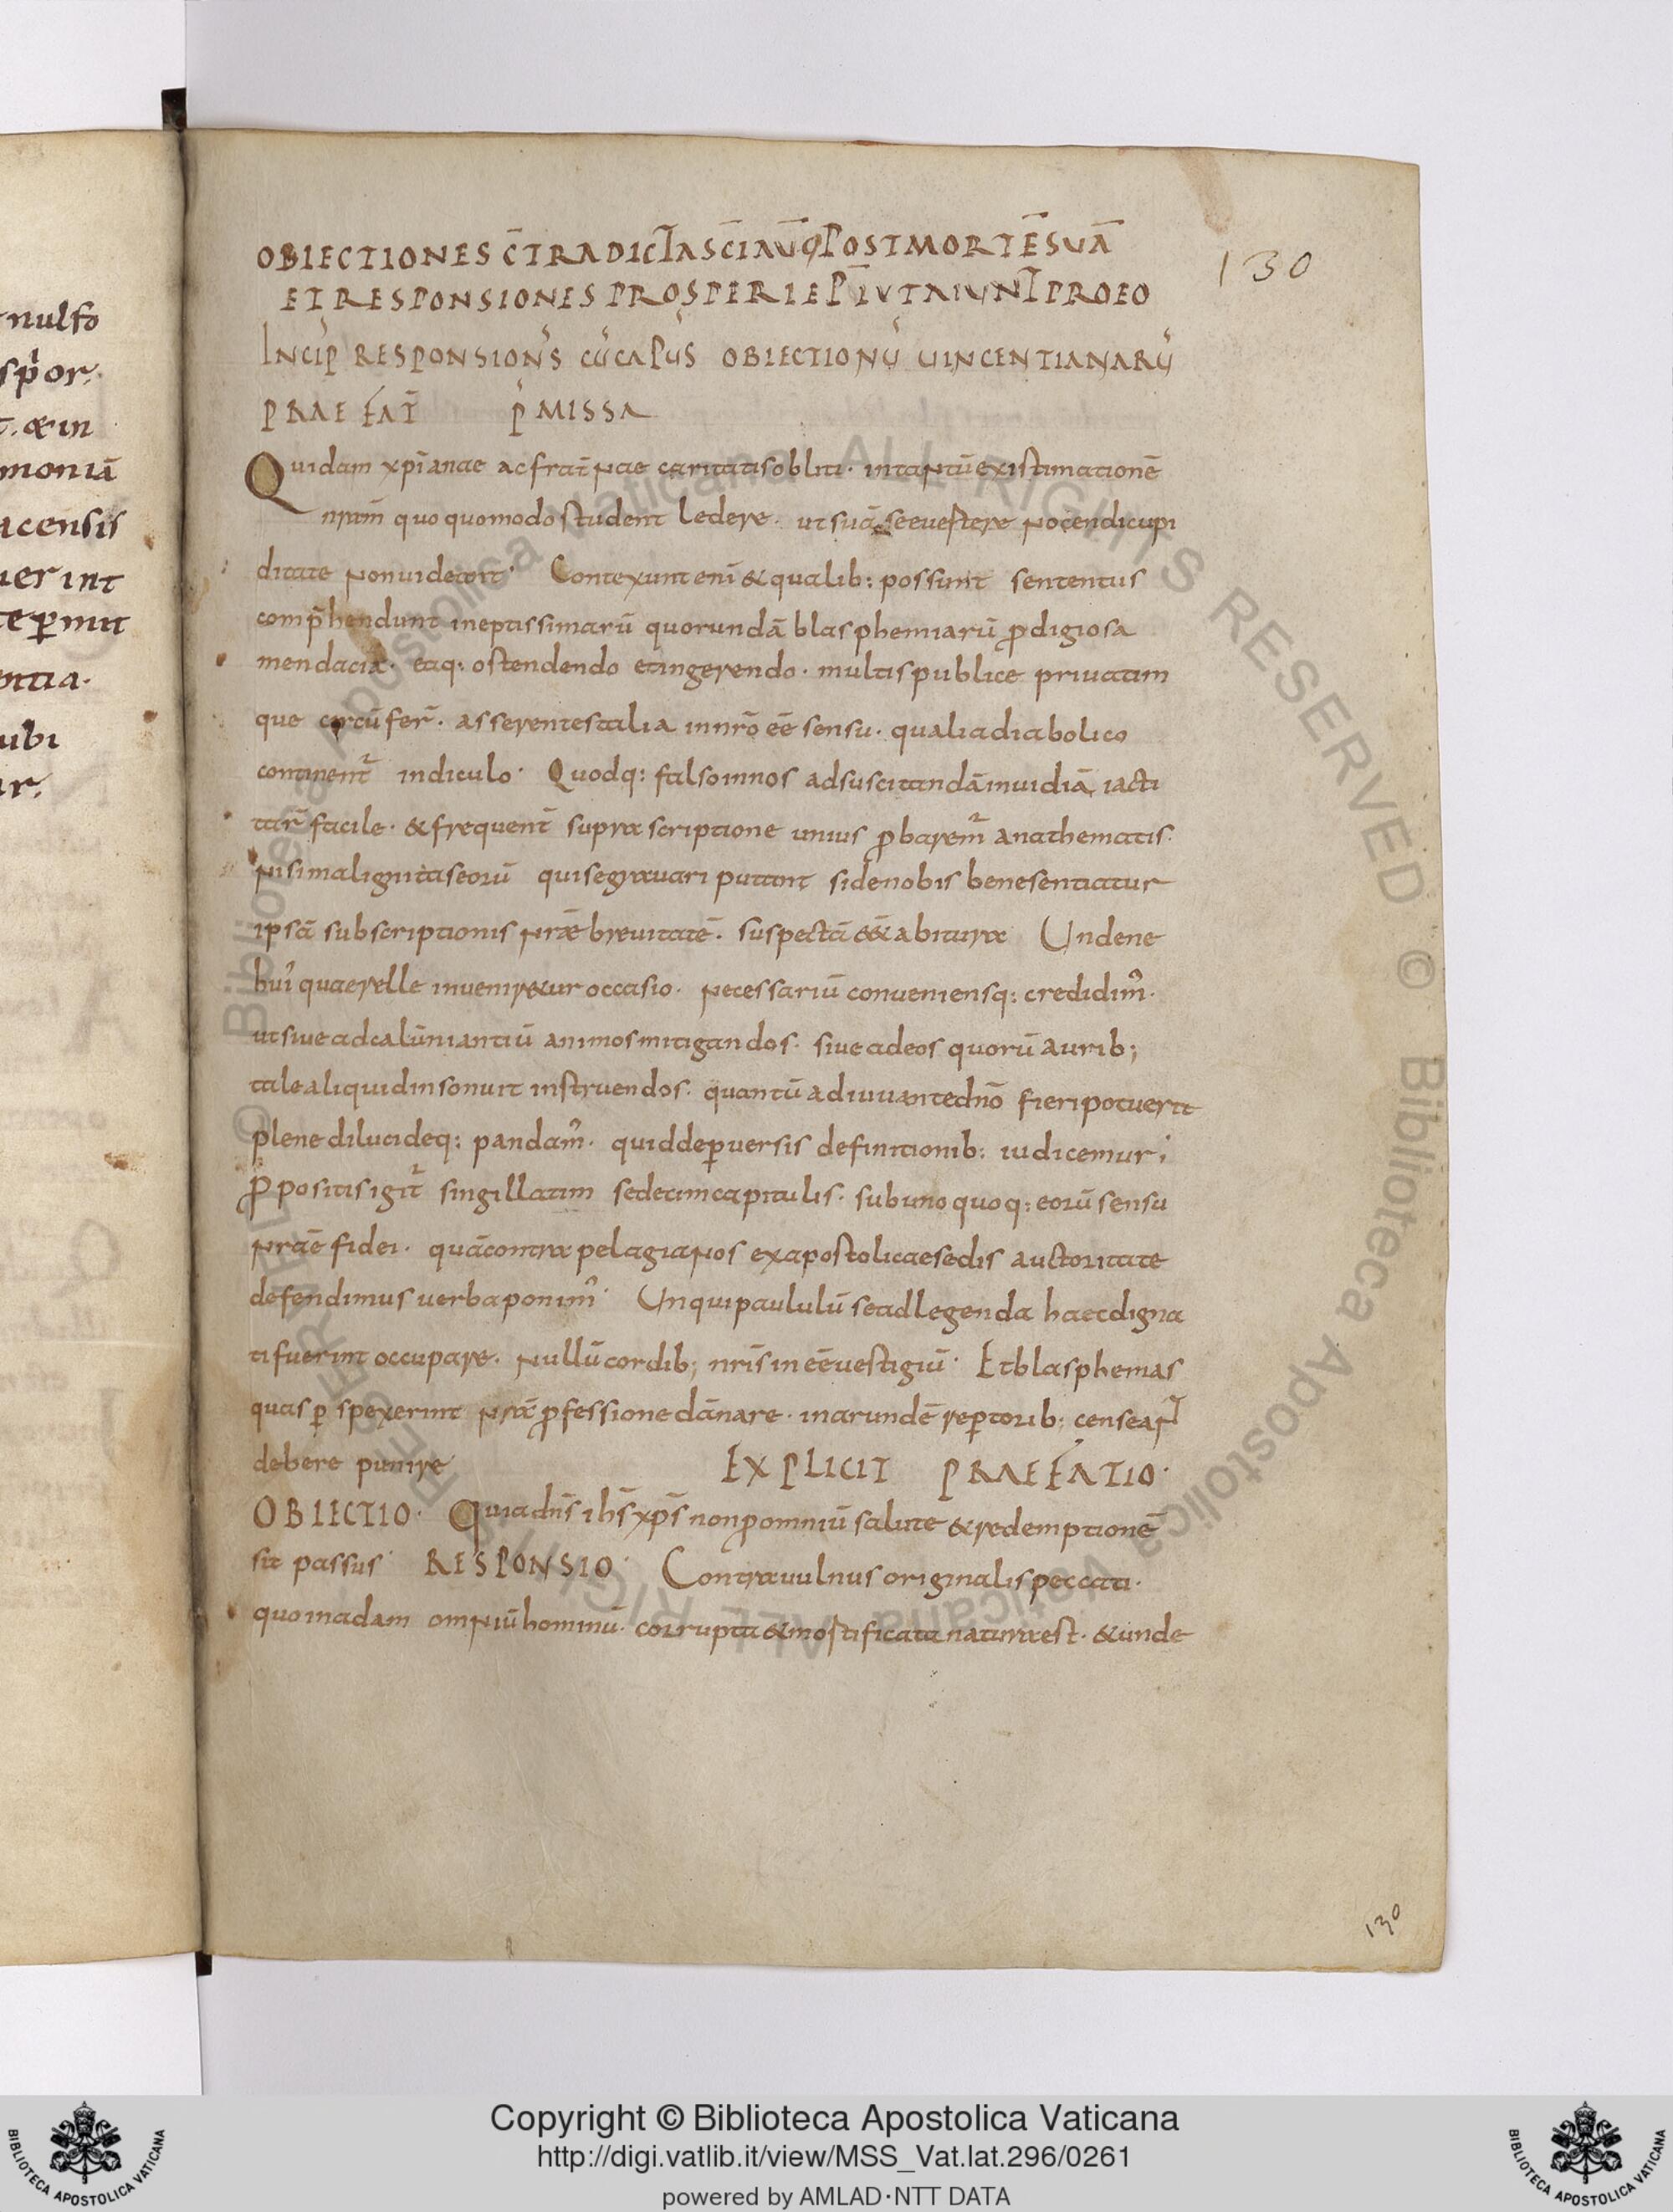 nulfo
spor.
t. & in
moniā
acensis
uerint
te ꝑmit
entia.
ubi
ur.
OBIECTIONES C̄TRADICT̄A SC̄I AUḠ POST MORTĒ SUĀ
ET RESPONSIONES PROSPERI EP̄I
PRO EO
130
INCIP̄ RESPONSION̄S CŪ CAP̄US OBIECTIONŪ UINCENTIANARŪ
PRAEFAT̄ P̄MISSA
Quidam xp̄ianae ac frat̄nae caritatis obliti · in tantū existimationē
nr̄am quoquomodo student ledere · ut suā se euertere nocendi cupi
ditate non uideant · Contexunt enī & qualib: possunt sententiis
comp̄hendunt ineptissimarū quorundā blasphemiarū ꝓdigiosa
mendacia · eaq: ostendendo et ingerendo · multis publice priuatim
que circūfer̄ · asserentes talia in nr̄o eē sensu · qualia diabolico
continent̄ indiculo · Quodq: falso in nos ad suscitandā inuidiā iacti
tar̄ facile · & frequent̄ suprascriptione unius ꝓbarem̄ anathematis ·
nisi malignitas eorū qui se grauari putant si de nobis bene sentiatur
ipsā subscriptionis nr̄ae breuitatē · suspectā eēt abitura Unde ne
hui quaerelle inueniretur occasio · necessariū conueniensq: credidim̄ ·
ut siue ad calūniantiū animos mitigandos · siue ad eos quorū aurib;
tale aliquid insonuit instruendos · quantū adiuuante dn̄o fieri potuerit
plene dilucideq: pandam̄ · quid de ꝑuersis definitionib: iudicemur ;
Ꝓpositis igit̄ singillatim sedecim capitulis · sub uno quoq: eorū sensu
nr̄ae fidei · quā contra pelagianos ex apostolicae sedis auctoritate
defendimus uerba ponim̄ · Un qui paululū se ad legenda haec digna
ti fuerint occupare · nullū cordib; nr̄is inēe uestigiū · Et blasphemas
quas ꝑspexerint nr̄ā ꝓfessione dānare · inarundē reꝑtorib: censeant̄
debere punire EXPLICIT PRAEFATIO ·
OBIECTIO · Quia dn̄s ih̄s xp̄s non ꝓ omniū salute & redemptionē
sit passus · RESPONSIO · Contra uulnus originalis peccati ·
quo in adam omniū hominū · corrupta & mortificata natura est · & unde
130
Copyright © Biblioteca Apostolica Vaticana
http://digi.vatlib.it/view/MSS_Vat.lat.296/0261
powered by AMLAD·NTT DATA
BIBLIOTECA APOSTOLICA VATICANA
BIBLIOTECA APOSTOLICA VATICANA
© Biblioteca Apostolica Vaticana ALL RIGHTS RESERVED
© Biblioteca Apostolica Vaticana ALL RIGHTS RESERVED